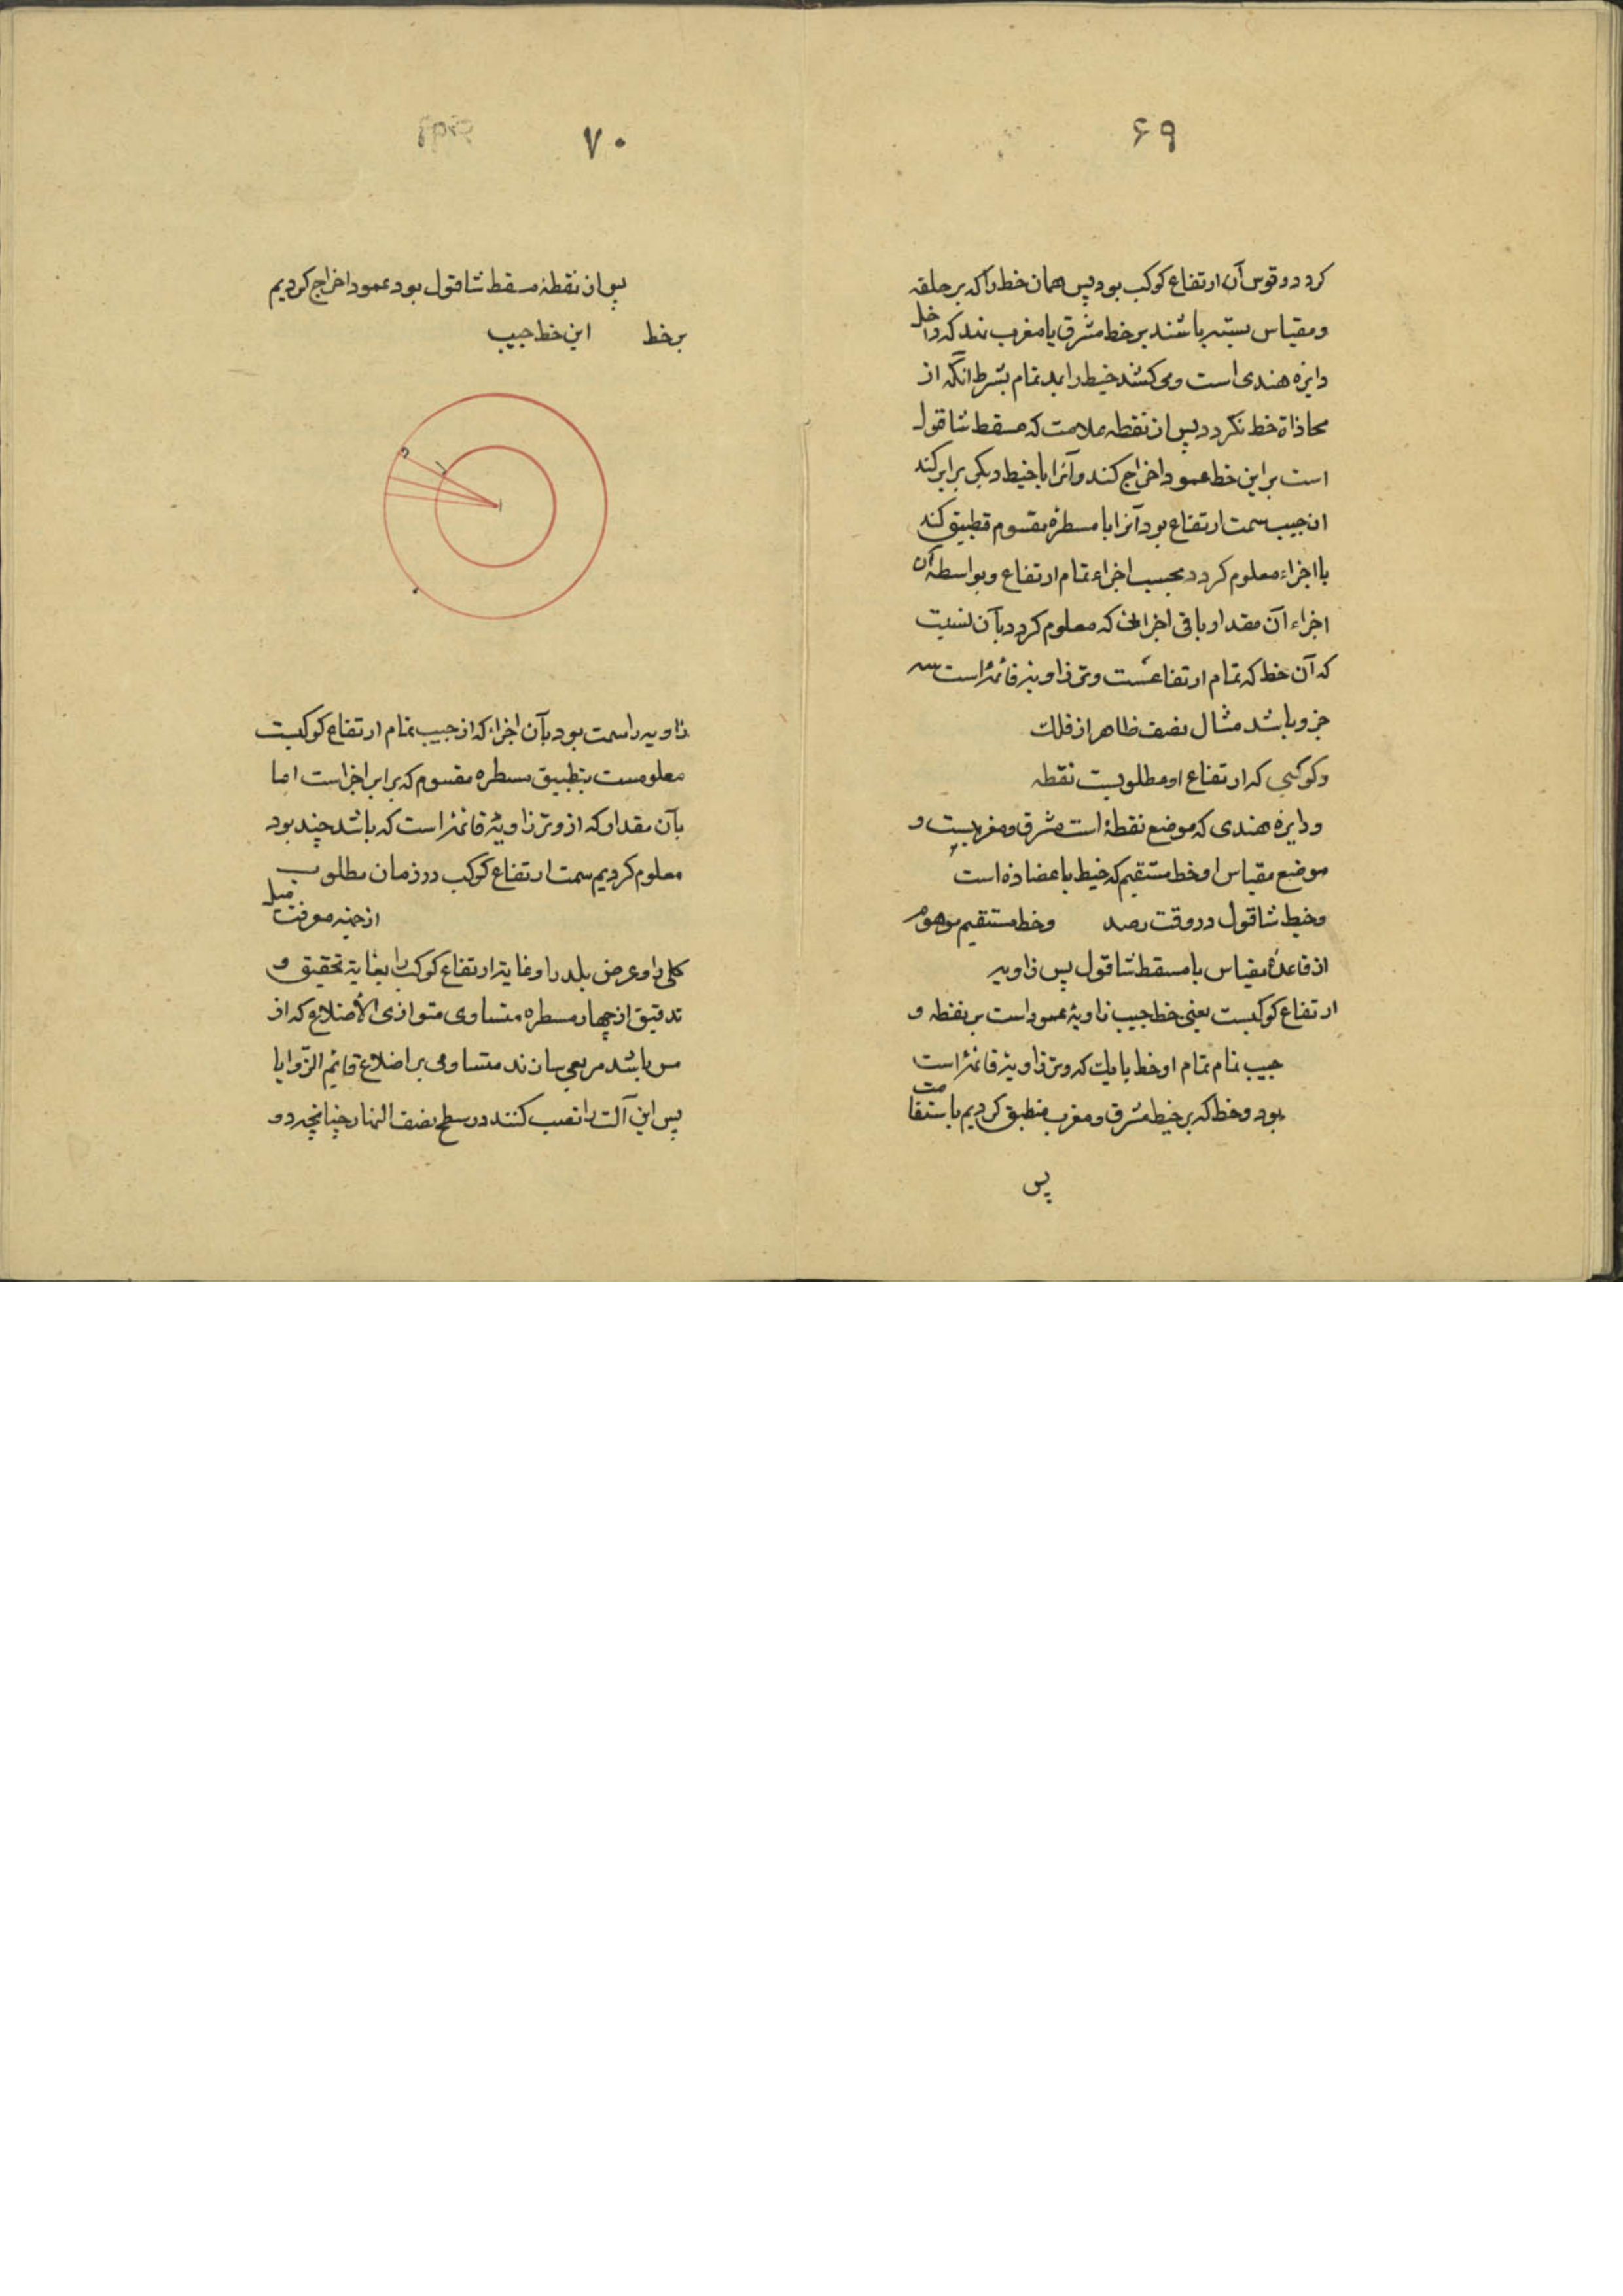 ۶۹
کردد و قوس آن ارتفاع کوکب بود پس همان خط را که بر حلقه
و مقیاس بسته باشند بر خط مشرق یا مغرب نند که داخل
دایره هندی است و می کشند خیط را بمد تمام بشرط انگه از
محاذاة خط نکردد پس از نقطه علامت که مسقط شاقول
است بر این خط عمود اخراج کند و آنرا با خیط دیکر برابر کند
ان جیب سمت ارتفاع بود آنرا با مسطره مقسوم تطبیق کند
با اجزاء معلوم کردد بحسب اجزاء تمام ارتفاع و بواسطه آن
اجزاء آن مقدار باقی اجزا که معلوم کردد بآن نسبت
که آن خط که تمام ارتفاعست وتر زاویه قائمه است
جزو باشد مثال نصف ظاهر از فلك
و کوکبی که ارتفاع او مطلوبست نقطه
و دایره هندی که موضع نقطهٔ است مشرق و مغربست و
موضع مقیاس او خط مستقیم که خیط با عضاده است
و خیط شاقول در وقت رصد و خط مستقیم موهوم
از قاعدهٔ مقیاس با مسقط شاقول پس زاویه
ارتفاع کوکبست یعنی خط جیب زاویهٔ عمود است بر نقطه و
جیب تمام تمام او خط بایك که وتر زاویهٔ قائمه است
بود و خط که بر خیط مشرق و مغرب منطبق کردیم باستقامت
پس
۷۰
پس از نقطهٔ مسقط شاقول بود عمود اخراج کردیم
بر خط این خط جیب
زاویه راسمت بود بآن اجزاء که از جیب تمام ارتفاع کوکبست
معلومست بتطبیق مسطره مقسوم که برابر اجزاست اما
بآن مقدار که از وتر زاویهٔ قائمه است که باشد چند بود
معلوم کردیم سمت ارتفاع کوکب در زمان مطلوب
از جهته معرفت میل
کلی را و عرض بلد را و غایة ارتفاع کوکب را بغایة تحقیق و
تدقیق از چهار مسطره متساوی متوازی الأضلاع که از
مس باشد مربعی سازند متساوی بر اضلاع قایم الزّوایا
پس این آلت را نصب کنند در سطح نصف النهار چنانچه دو